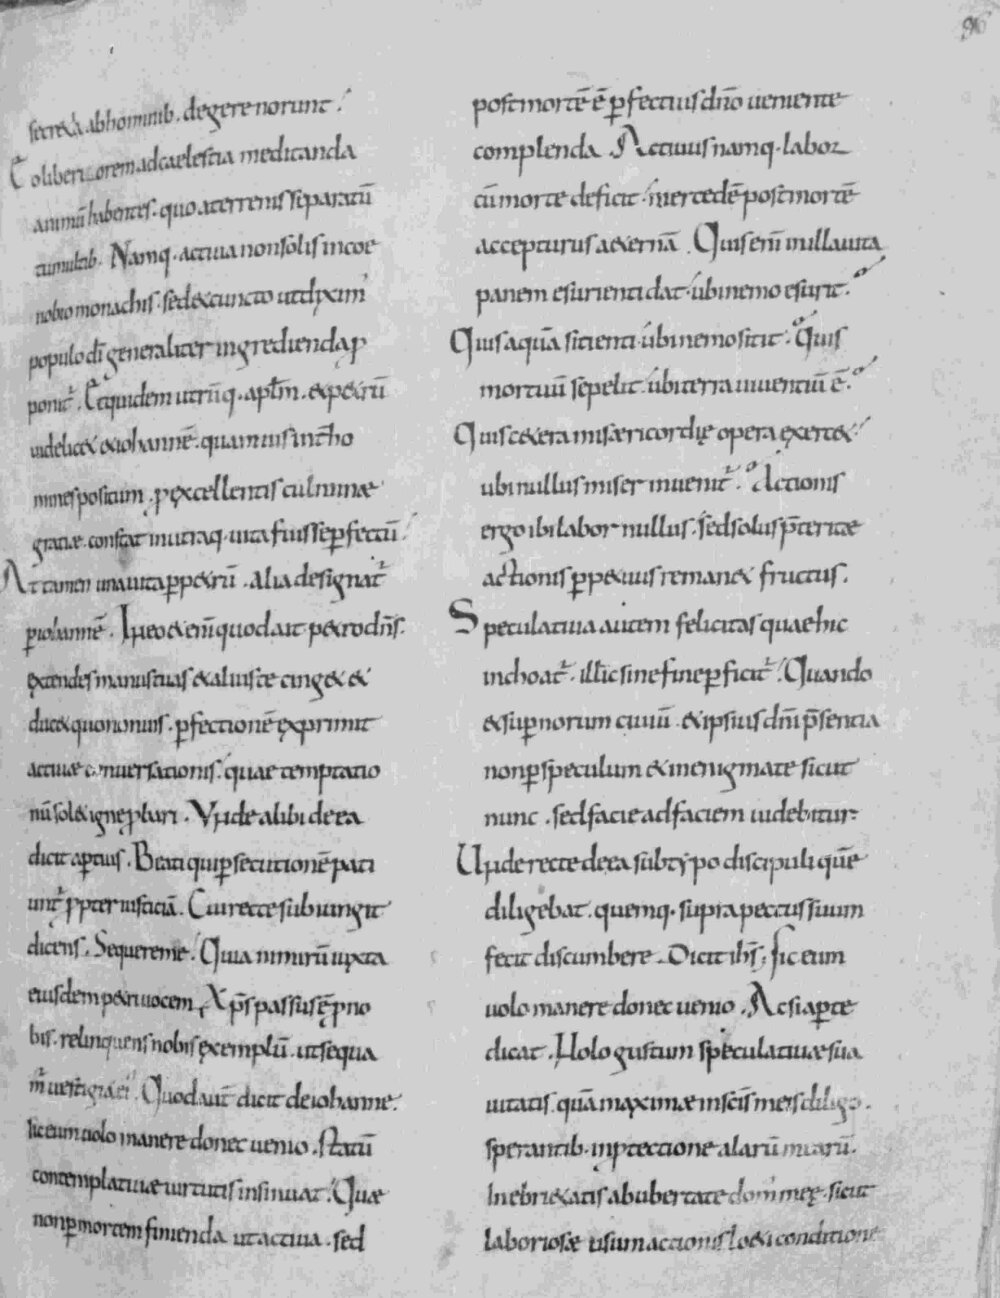 96
secreta ab hominib. degere norunt.
Et liberiorem ad caelestia meditanda
animū habentes. quo a terrenis separatū
tumultib. Namq. actiua non solis in coe
nobio monachis. sed & cuncto ut diximꝰ
populo dī generaliter ingredienda ꝓ
ponit᷑. Et quidem utrūq. aplm̄. & petrū
uidelicet & iohannē. quamuis int̄ ho
mines positum. ꝓ excellentis culminae
gratiae. constat in utraq. uita fuisse ꝑfectū.
Attamen una uita ꝑ petrū. alia designat᷑
ꝑ iohannē. In eo etenī quod ait petro dn̄s.
extendes manus tuas & alius te cinget &
ducet quo non uis. ꝑfectionē exprimit
actiuae conuersationis. quae temptatio
nū solet igne ꝓbari. Vnde alibi de ea
dicit aꝑtius. Beati qui ꝑsecutionē pati
unt᷑ ꝓpter iusticiā. Cui recte subiungit
dicens. Sequere me. Quia nimirū iuxta
eiusdem petri uocem, Xp̄s passus ē ꝓ no
bis. relinquens nobis exemplū. ut sequa
m̄ uestigia ei. Quod aut̄ dicit de iohanne.
sic eum uolo manere donec uenio. statū
contemplatiuae uirtutis insinuat. Quae
non ꝑ mortem finienda ut actiua. sed
post mortē ē ꝑfectius dn̄o ueniente
complenda. Actiuus namq. labor
cū morte deficit. mercedē post mortē
accepturus aeternā. Quis enī in illa uita
panem esurienti dat. ubi nemo esurit.
Quis aquā sitienti. ubi nemo sitit. Quis
mortuū sepelit. ubi terra uiuentiū ē.
Quis cetera misaericordię opera exercet.
ubi nullus miser inuenit᷑. Actionis
ergo ibi labor nullus. sed solus p̄teritae
actionis ꝑpetuus remanet fructus.
Speculatiua autem felicitas quae hic
inchoat᷑. illic sine fine ꝑficit᷑. Quando
& suꝑnorum ciuiū. & ipsius dn̄i p̄sentia
non ꝑ speculum & in enigmate sicut
nunc. sed facie ad faciem uidebitur.
Unde recte de ea sub typo discipuli quē
diligebat. quemq. supra pectus suum
fecit discumbere. Dicit ihs̄; sic eum
uolo manere donec uenio. Ac si aꝑte
dicat. Nolo gustum speculatiuae sua
uitatis. quā maximae in sc̄is meis diligo.
sperantib. in ꝓtectione alarū mearū.
Inebriatis ab ubertate domꝰ meę. sicut
laboriosae usum actionis lo&i conditione